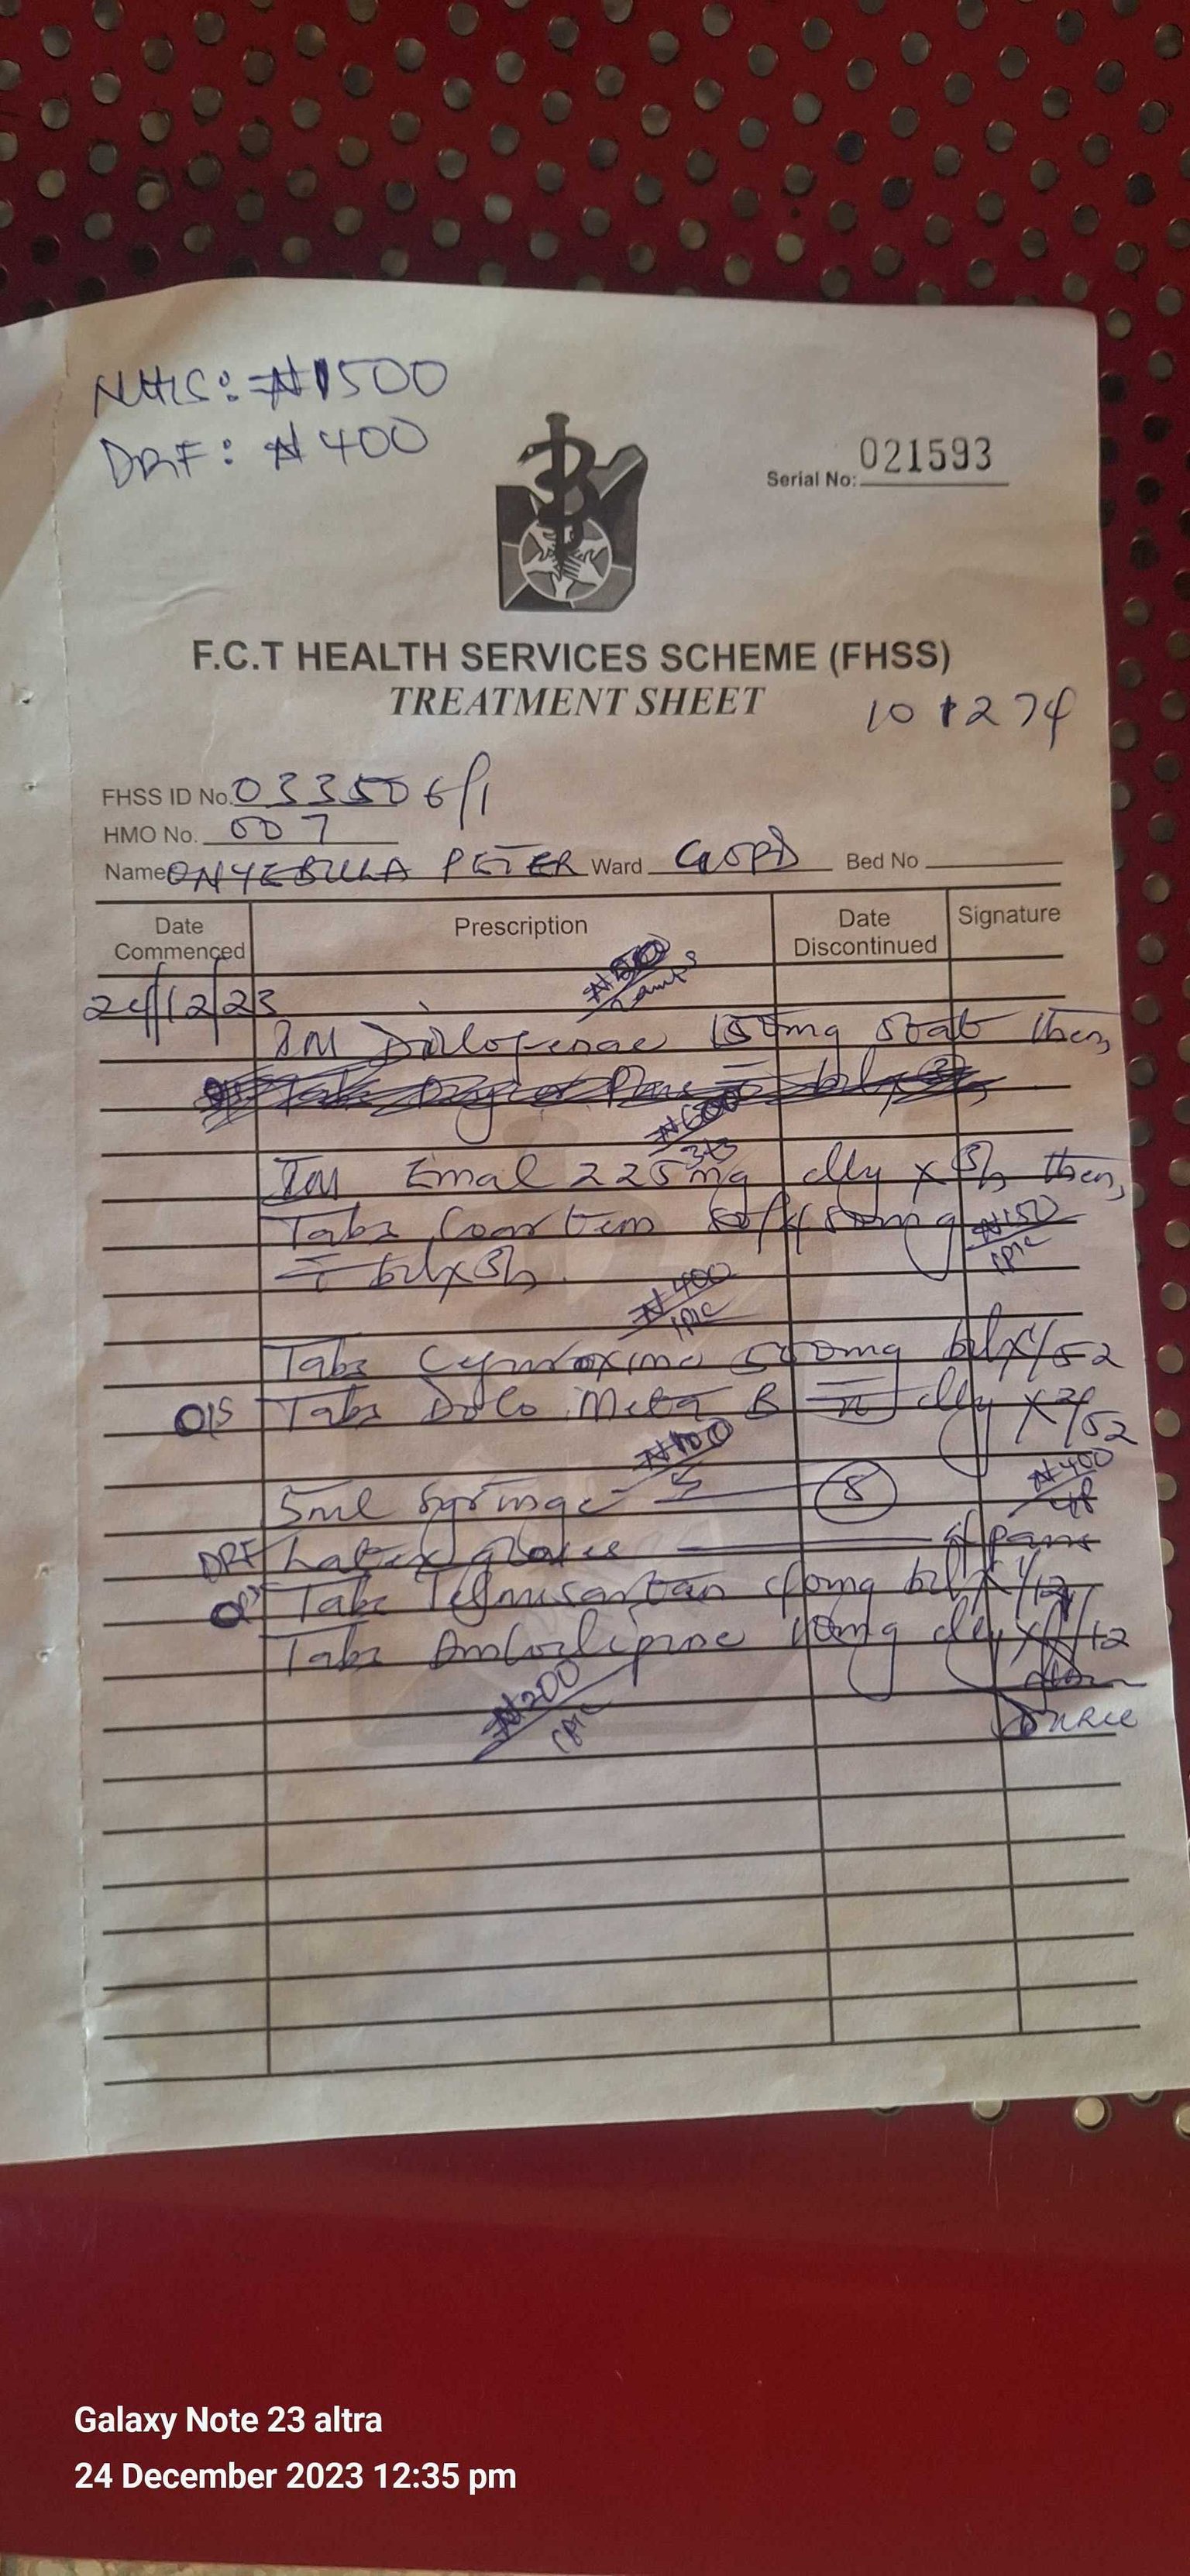 NHIS: ₦1500
DRF: ₦400
Serial No: 021593
F.C.T HEALTH SERVICES SCHEME (FHSS)
TREATMENT SHEET
101274
FHSS ID No. 033506/1
HMO No. 007
Name ONYEBULA PETER Ward GOPD Bed No
Date Commenced Prescription Date Discontinued Signature
24/12/23
IM 150mg stat then,
₦600
IM Emal 225mg dly x 3/7 then,
Tabs Coartem
₦150
1pkc
bd x 3/7
₦400
1pkc
Tabs 500mg bd x 1/52
O/S Tabs Dolo Meta B dly x 2/52
₦100
5ml Syringe 5
₦400
DRF Latex gloves
O/S Tabs Telmisartan bd x 1/12
Tabs Amlodipine 10mg dly x 1/12
₦200
1pkc
Galaxy Note 23 altra
24 December 2023 12:35 pm